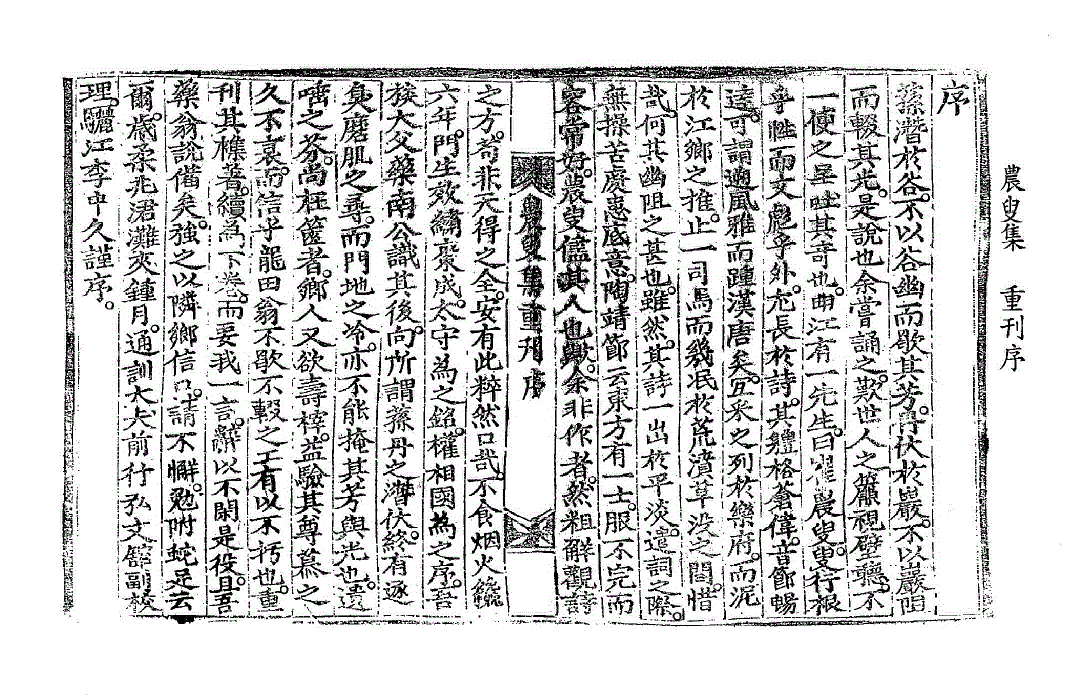 農叟集 重刊序
序
蓀潛於谷。不以谷幽而歇其芳。丹伏於巖。不以巖阻
而輟其光。是說也余嘗誦之。歎世人之籬視壁聽。不
一便之呈哇其奇也。曲江有一先生。曰權農叟。叟。行根
乎性而文彪乎外。尤長於詩。其軆格蒼偉。音節暢
達。可謂遡風雅而踵漢唐矣。宜采之列於樂府。而泥
於江鄉之推。止一司馬而幾泯於荒濆草沒之間。惜
哉。何其幽阻之甚也。雖然。其詩一出於平淡。遣詞之際。
無操苦慶惠底意。陶靖節云東方有一士。服不完而
容常好。農叟儘其人也歟。余非作者。然粗解觀詩
農叟集重刊序
之方。苟非天得之全。安有此粹然口哉。不食烟火纔
六年。門生效繡裒成。太守為之銘。權相國為之序。吾
族大父藥南公識其後。向所謂蓀丹之潛伏。終有遂
臭磨肌之尋。而門地之冷。亦不能掩其芳與光也。遺
嚌之芬。尚在篋者。鄉人又欲壽梓。益驗其尊慕之
久不衰。而信乎龍田翁不歇不輟之工有以不朽也。重
刊其樵著。續為下卷。而要我一言。辭以不閑是役。且吾
藥翁說備矣。強之以隣鄉信口。請不懈。勉附蛇足云
爾。歲柔兆涒灘夾鍾月。通訓大夫前行弘文館副校
理。驪江李中久謹序。